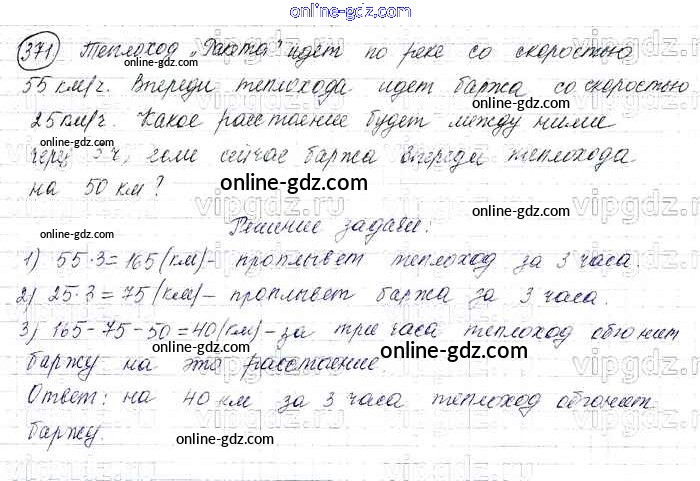 online-gdz.com
371 Теплоход „Ракета" идет по реке со скоростью
55 км/ч. Впереди теплохода идет баржа со скоростью
online-gdz.com
online-gdz.com
25 км/ч. Какое расстояние будет между ними
online-gdz.com
через 3ч, если сейчас баржа впереди теплохода
на 50 км?
online-gdz.com
vipgdz.ru
online-gdz.com
Решение задачи:
1) 55·3=165 (км) - проплывет теплоход за 3 часа.
online-gdz.com
2) 25·3=75 (км) - проплывет баржа за 3 часа.
online-gdz.com
3) 165-75-50=40 (км) - за три часа теплоход обгонит
online-gdz.com
online-gdz.com
баржу на это расстояние.
vipgdz.ru
Ответ: на 40 км за 3 часа теплоход обгонит
баржу.
online-gdz.com